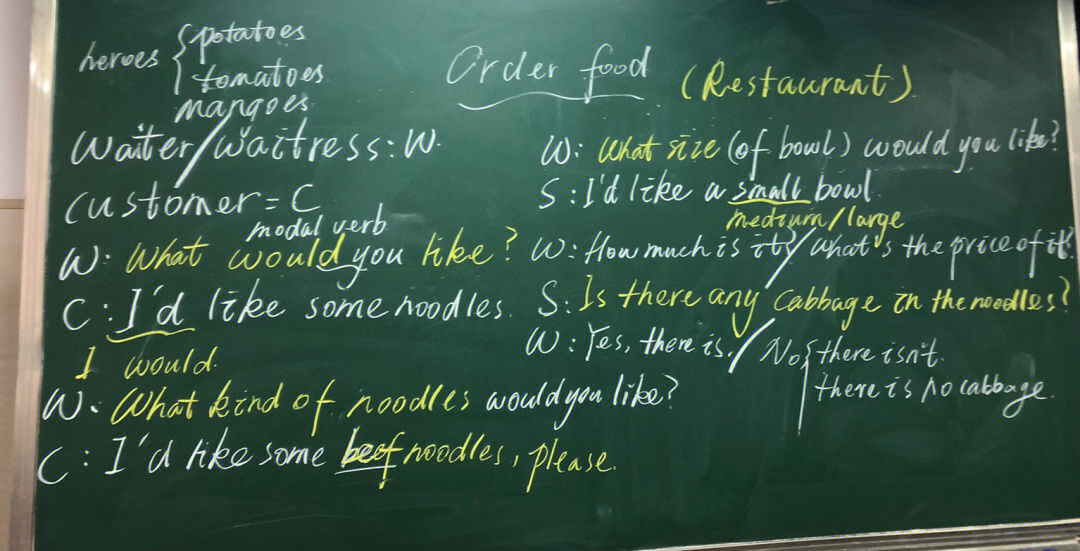 heroes { potatoes
tomatoes
mangoes
Order food (Restaurant)
Waiter/Waitress: W.
Customer = C
modal verb
W: What would you like?
C: I'd like some noodles.
I would.
W: What kind of noodles would you like?
C: I'd like some beef noodles, please.
W: What size (of bowl) would you like?
S: I'd like a small bowl.
medium/large
W: How much is it?/What's the price of it?
S: Is there any cabbage in the noodles?
W: Yes, there is./No, { there isn't.
there is no cabbage.